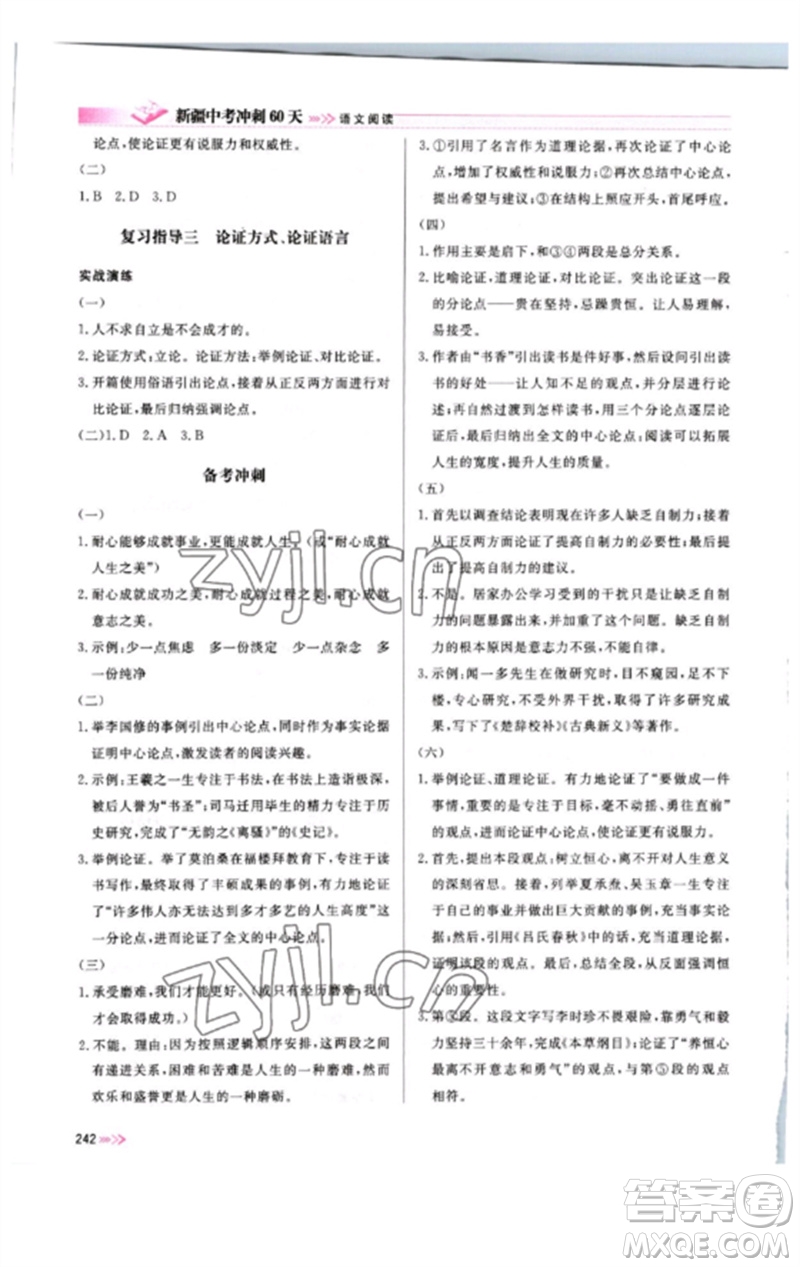 新疆中考冲刺60天 语文阅读
论点,使论证更有说服力和权威性。
(二)
1.B 2.D 3.D
复习指导三 论证方式、论证语言
实战演练
(一)
1.人不求自立是不会成才的。
2.论证方式:立论。论证方法:举例论证、对比论证。
3.开篇使用俗语引出论点,接着从正反两方面进行对
比论证,最后归纳强调论点。
(二)1.D 2.A 3.B
备考冲刺
(一)
1.耐心能够成就事业,更能成就人生。(或“耐心成就
人生之美”)
2.耐心成就成功之美,耐心成就过程之美,耐心成就
意志之美。
3.示例:少一点焦虑 多一份淡定 少一点杂念 多
一份纯净
(二)
1.举李国修的事例引出中心论点,同时作为事实论据
证明中心论点,激发读者的阅读兴趣。
2.示例:王羲之一生专注于书法,在书法上造诣极深,
被后人誉为“书圣”;司马迁用毕生的精力专注于历
史研究,完成了“无韵之《离骚》”的《史记》。
3.举例论证。举了莫泊桑在福楼拜教育下,专注于读
书写作,最终取得了丰硕成果的事例,有力地论证
了“许多伟人亦无法达到多才多艺的人生高度”这
一分论点,进而论证了全文的中心论点。
(三)
1.承受磨难,我们才能更好。(或只有经历磨难,我们
才可能取得成功。)
2.不能。理由:因为按照逻辑顺序安排,这两段之间
有递进关系,困难和苦难是人生的一种磨砺,然而
欢乐和盛誉更是人生的一种磨砺。
242
3.①引用了名言作为道理论据,再次论证了中心论
点,增加了权威性和说服力;②再次总结中心论点,
提出希望与建议;③在结构上照应开头,首尾呼应。
(四)
1.作用主要是启下,和③④两段是总分关系。
2.比喻论证,道理论证,对比论证。突出论证这一段
的分论点——贵在坚持,忌躁贵恒。让人易明理,
易接受。
3.作者由“书香”引出读书是件好事,然后设问引出读
书的好处——让人知不足的观点,接着谈读书的乐
趣,再自然过渡到怎样读书,用三个分论点逐层论
证,最后归纳出全文的中心论点:阅读可以拓展
人生的宽度,提升人生的质量。
(五)
1.首先以调查结论表明现在许多人缺乏自制力。接着
从正反两方面论证了提高自制力的必要性;最后提
出了提高自制力的建议。
2.不是。居家办公学习受到的干扰只是让缺乏自制
力的问题暴露出来,并加重了这个问题。缺乏自制
力的根本原因是意志力不足,不能自律。
3.示例:闻一多先生在做研究时,目不窥园,足不下
楼,专心研究,心无旁骛,最终取得了许多研究成
果,写下了《楚辞校补》《古典新义》等著作。
(六)
1.举例论证、道理论证。有力地论证了“要做成一件
事情,重要的是专注于目标,毫不动摇、勇往直前”
的观点,进而论证中心论点,使论证更有说服力。
2.首先,提出本段观点:树立恒心,需要对人生意义
的深刻省思。接着,列举夏承焘、吴玉章一生专注
于自己的事业并做出巨大贡献的事例,充当事实论
据,论证观点。最后,引用《吕氏春秋》作道理论据,
证明该段的观点。这样,充分论证了树立人生目标
的重要性。
3.第③段。这段文字写李时珍不畏困难,靠勇气和毅
力坚持三十余年,完成《本草纲目》;论证了“养恒心
最离不开意志和勇气”的观点,与第⑤段的观点
相符。
zyjl.cn
zyjl.cn
答案卷
MXQE.COM